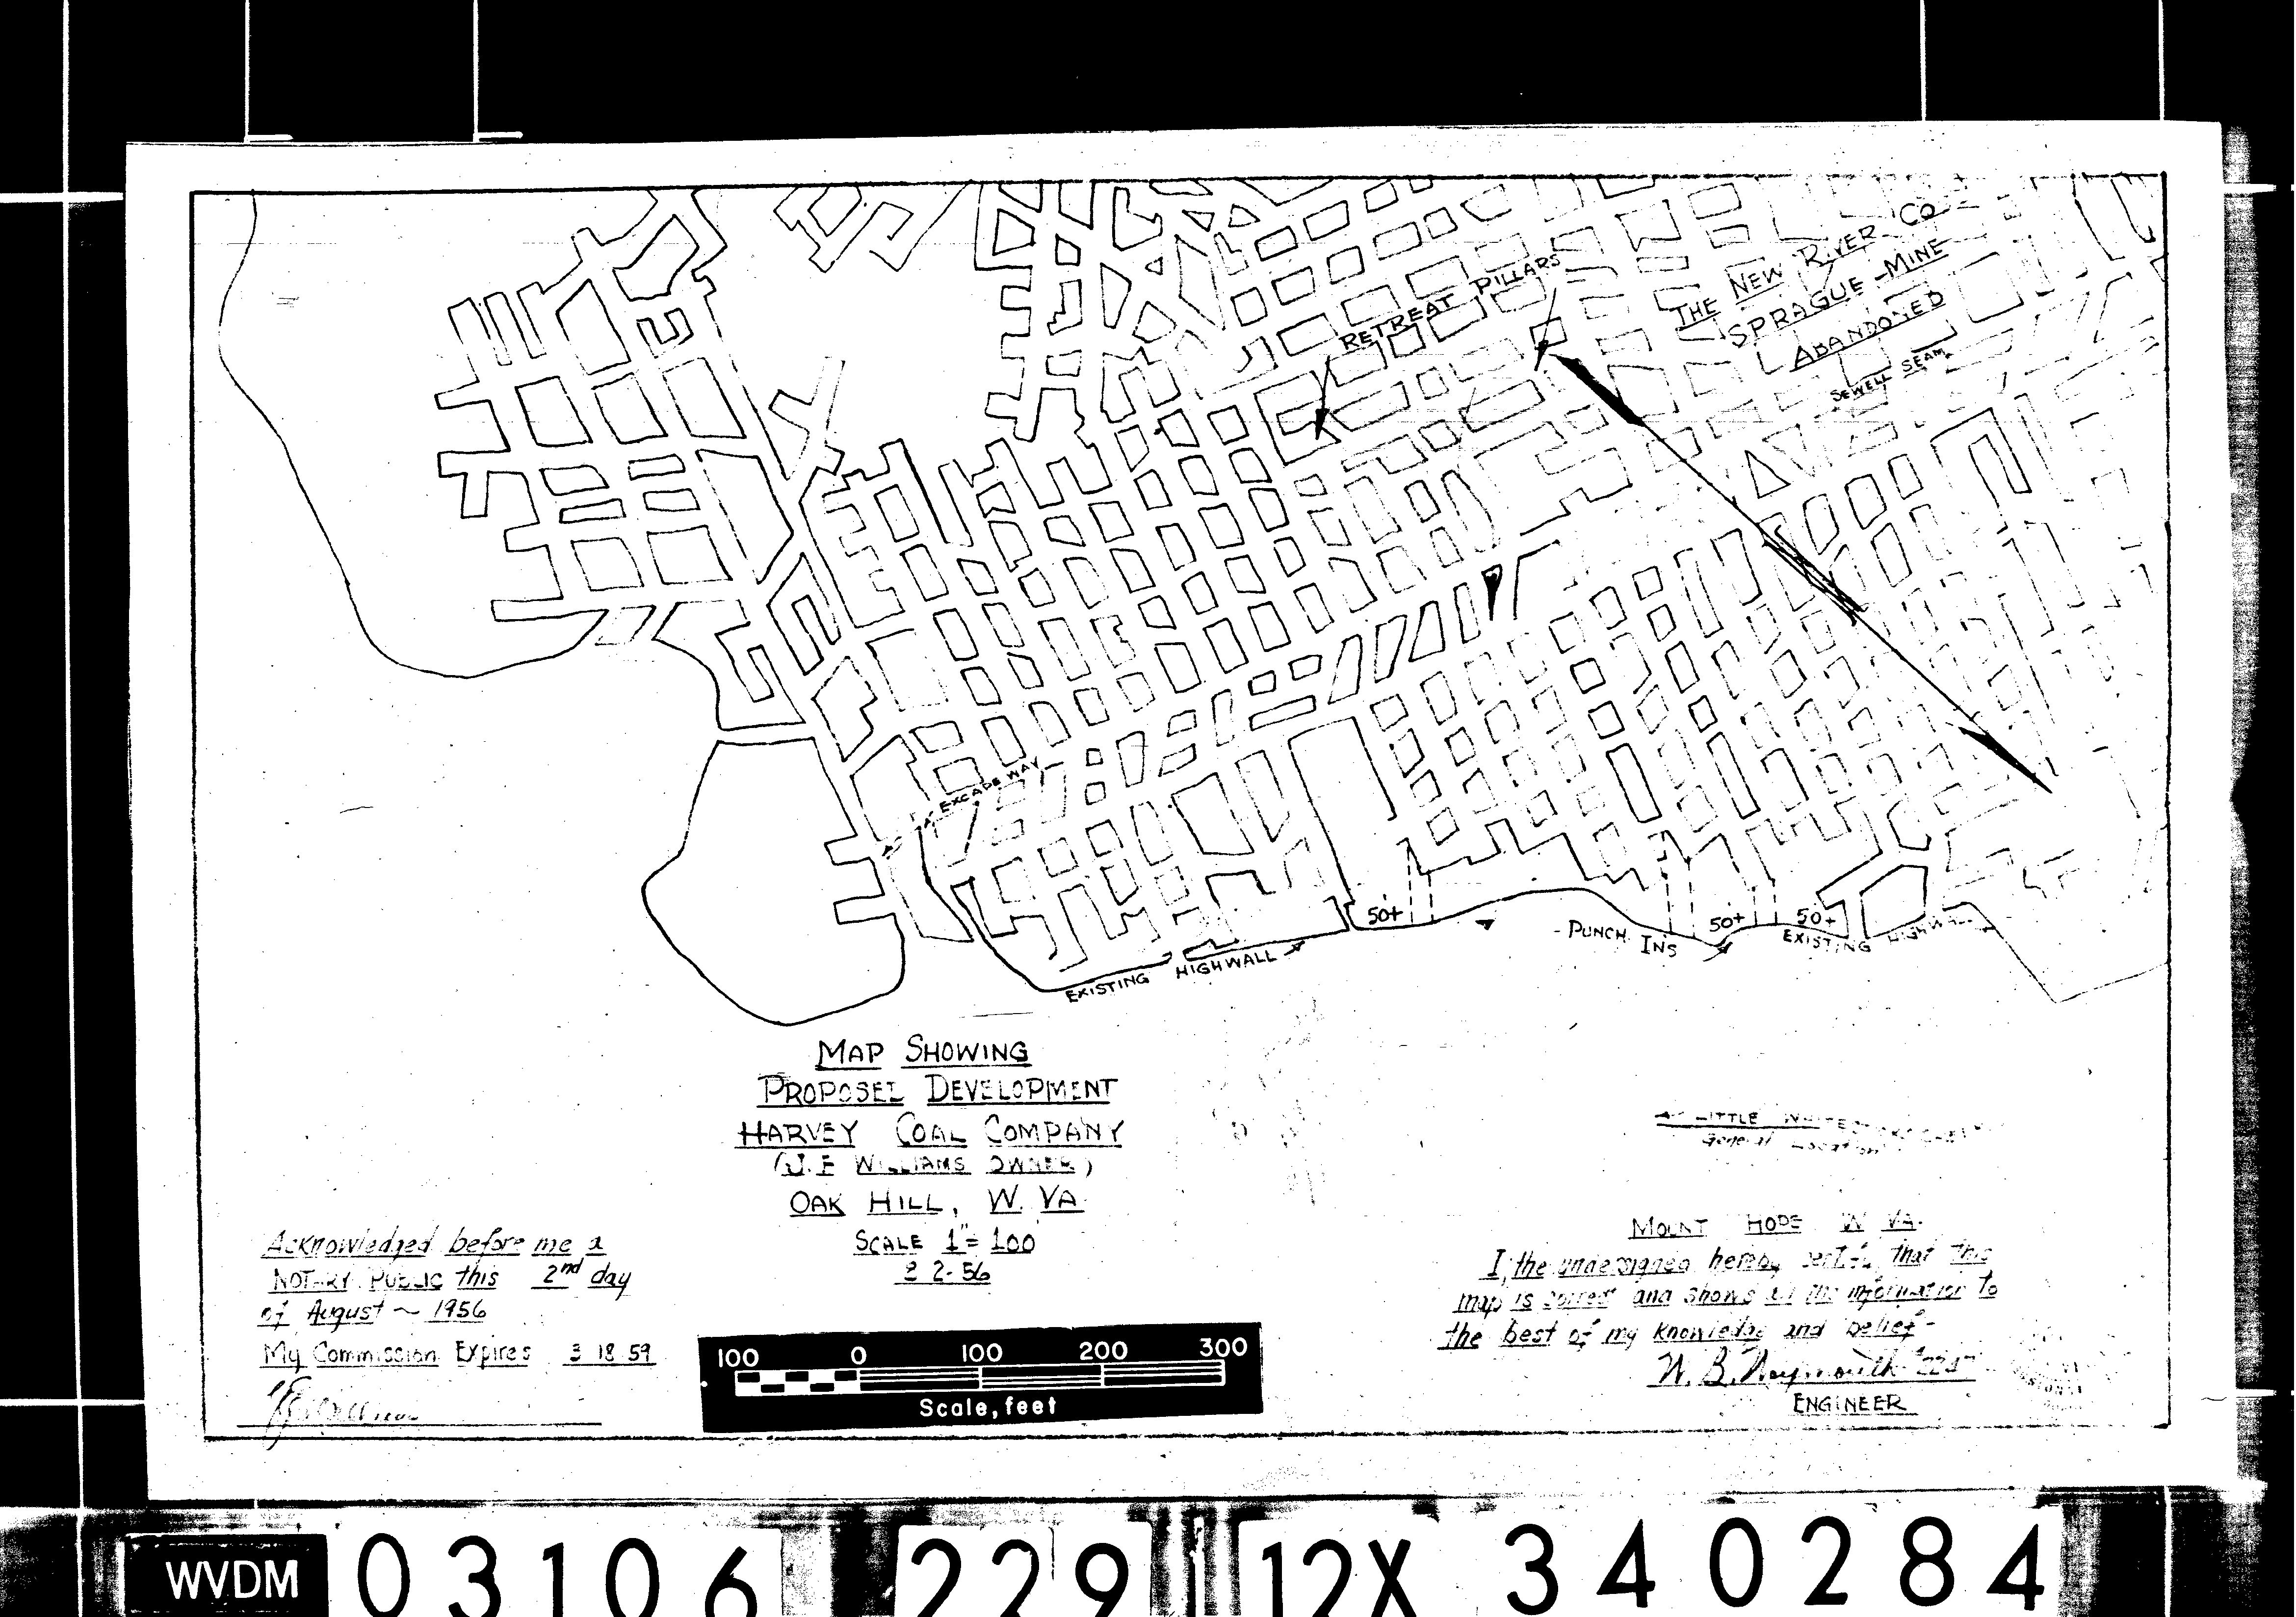 THE NEW RIVER CO
SPRAGUE MINE
ABANDONED
SEWELL SEAM
RETREAT PILLARS
EXCAPE WAY
50+
PUNCH INS
50+
50+
EXISTING HIGHWALL
EXISTING HIGHWALL
MAP SHOWING
PROPOSED DEVELOPMENT
HARVEY COAL COMPANY
(J.E WILLIAMS OWNER)
OAK HILL, W. VA
SCALE 1"=100
2-56
LITTLE
General Location
Acknowledged before me a
NOTARY PUBLIC this 2nd day
of August ~ 1956
My Commission Expires 3 18 59
MOUNT HOPE W VA.
I, the undersigned hereby certify that this
map is correct and shows all the information to
the best of my knowledge and belief-
W. B.
ENGINEER
100 0 100 200 300
Scale, feet
WVDM 03106 229 12X 340284